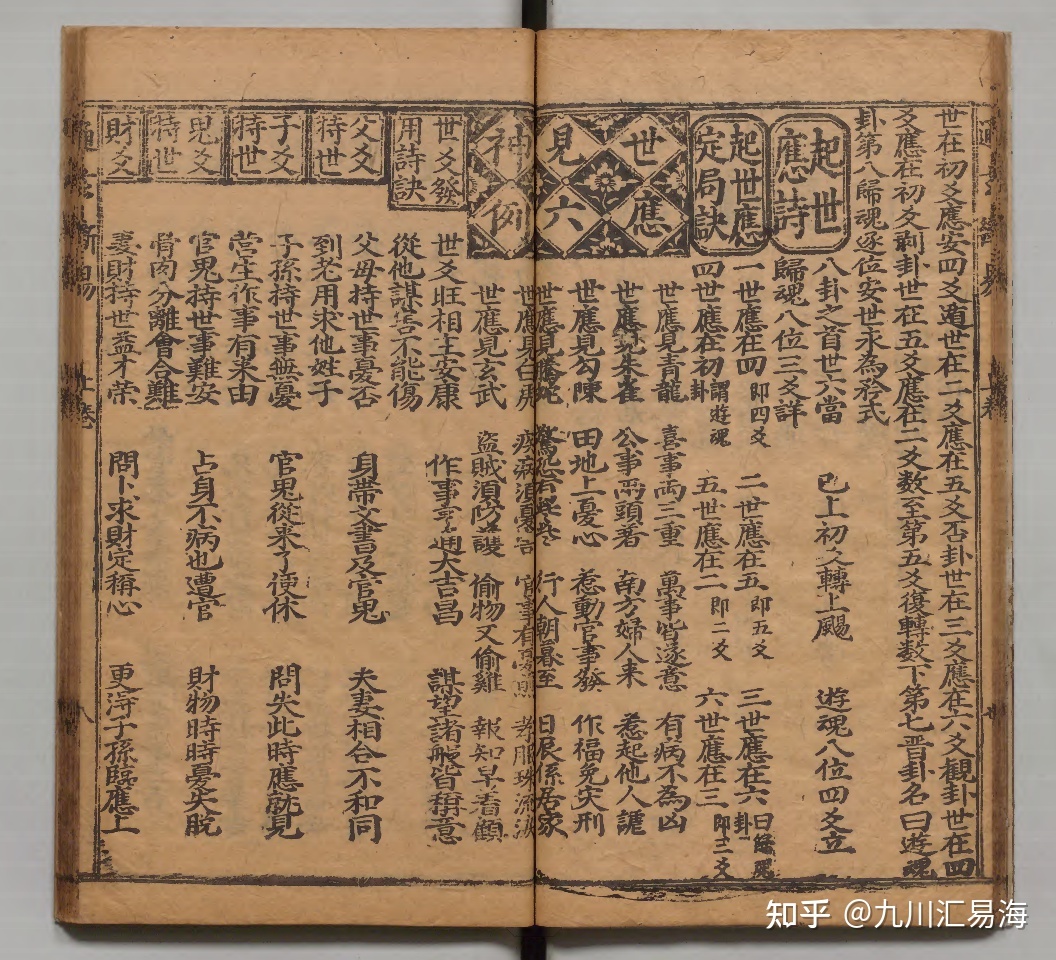 世在初爻應安四爻遁世在二爻應在五爻否卦世在三爻應在六爻観卦世在四
爻應在初爻剥卦世在五爻應在二爻数至第五爻復轉数下第七晋卦名曰遊魂
卦第八歸魂逐位安世永為矜式
起世應詩
八卦之首世六當 已上初爻轉上颺 遊魂八位四爻立
歸魂八位三爻詳
起世應定局訣
一世應在四 即四爻 二世應在五 即五爻 三世應在六 卦曰歸魂
四世應在初 卦謂遊魂 五世應在二 即二爻 六世應在三 即三爻
世應見六神例
世應見青龍 喜事両三重 萬事皆遂意 有病不為凶
世應見朱雀 公事両頭著 南方婦人来 惹起他人謔
世應見勾陳 田地上憂心 惹動官事發 作福免灾刑
世應見螣蛇 行人朝暮至 日辰係居家
世應見白虎 疾病須憂 官事有 孝服珠流
世應見玄武 盗賊須防護 偷物又偷雞 報知早看顧
世爻發用詩訣
世爻旺相主安康 作事亨通大吉昌 謀望諸般皆稱意
從他謀害不能傷
父爻持世
父母持世事憂否 身帶文書及官鬼 夫妻相合不和同
到老用求他姓子
子爻持世
子孫持世事無憂 官鬼從来了便休 問失此時應就見
営生作事有来由
鬼爻持世
官鬼持世事難安 占身不病也遭官 財物時時憂失脫
骨肉分離會合難
財爻
妻財持世益才榮 問卜求財定稱心 更淂子孫臨應上
上卷
八
知乎 @九川汇易海